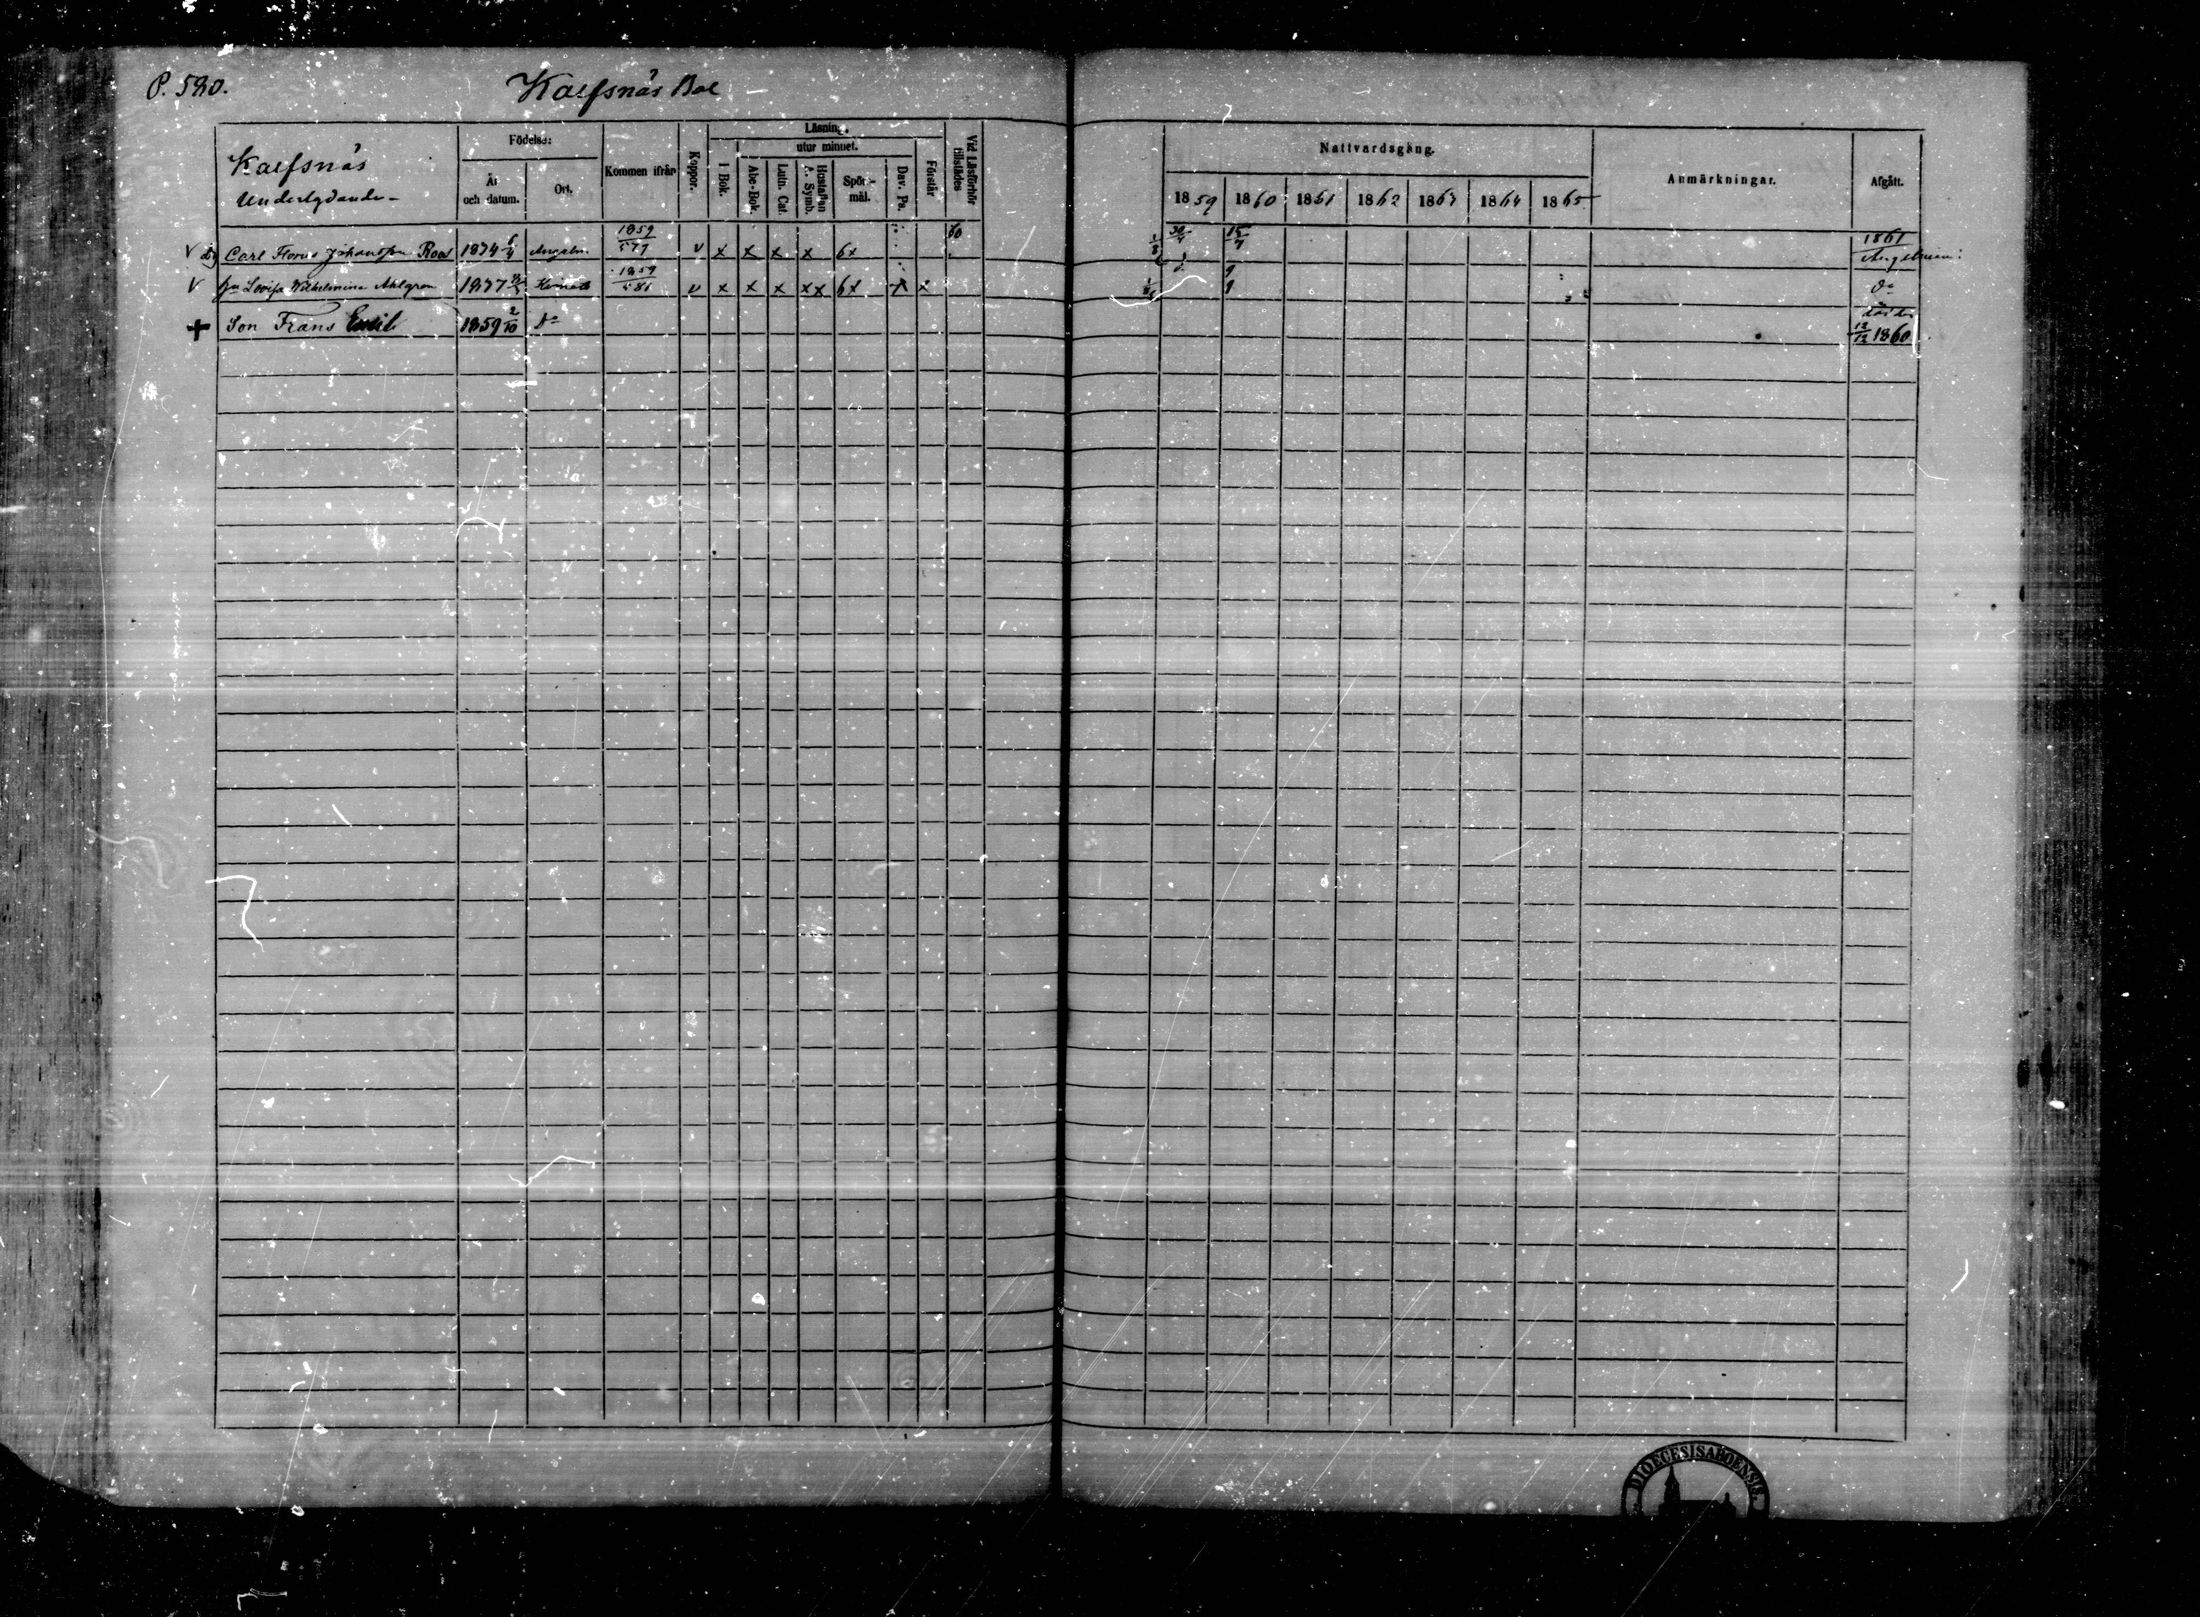 P. 580.
Kaefsnäs Bol
Kaefsnäs
Underlydande
Födelse:
År
och datum.
Ort.
Kommen ifrån
Koppor.
Läsning.
utur minnet.
I Bok.
Abc-Bok.
Luth. Cat.
Hustaflan
A. Symb.
Spörs-
mål.
Dav. Ps.
Förstår
Vid Läsförhör
tillstädes
Nattvardsgång.
1859 1860 1861 1862 1863 1864 1865
Anmärkningar.
Afgått.
Carl Florus Johansson Roos 1834 6/4 Angeln. 1859/577 v x x x x 6x 60 30/4 15/7 1861
Lovisa Wilhelmina Ahlgren 1837 Kimito 1859/581 v x x x xx 6x x x Do
+ Son Frans Emil 1859 2/10 Do död 12/12 1860
DIOECESIS ABOENSIS.